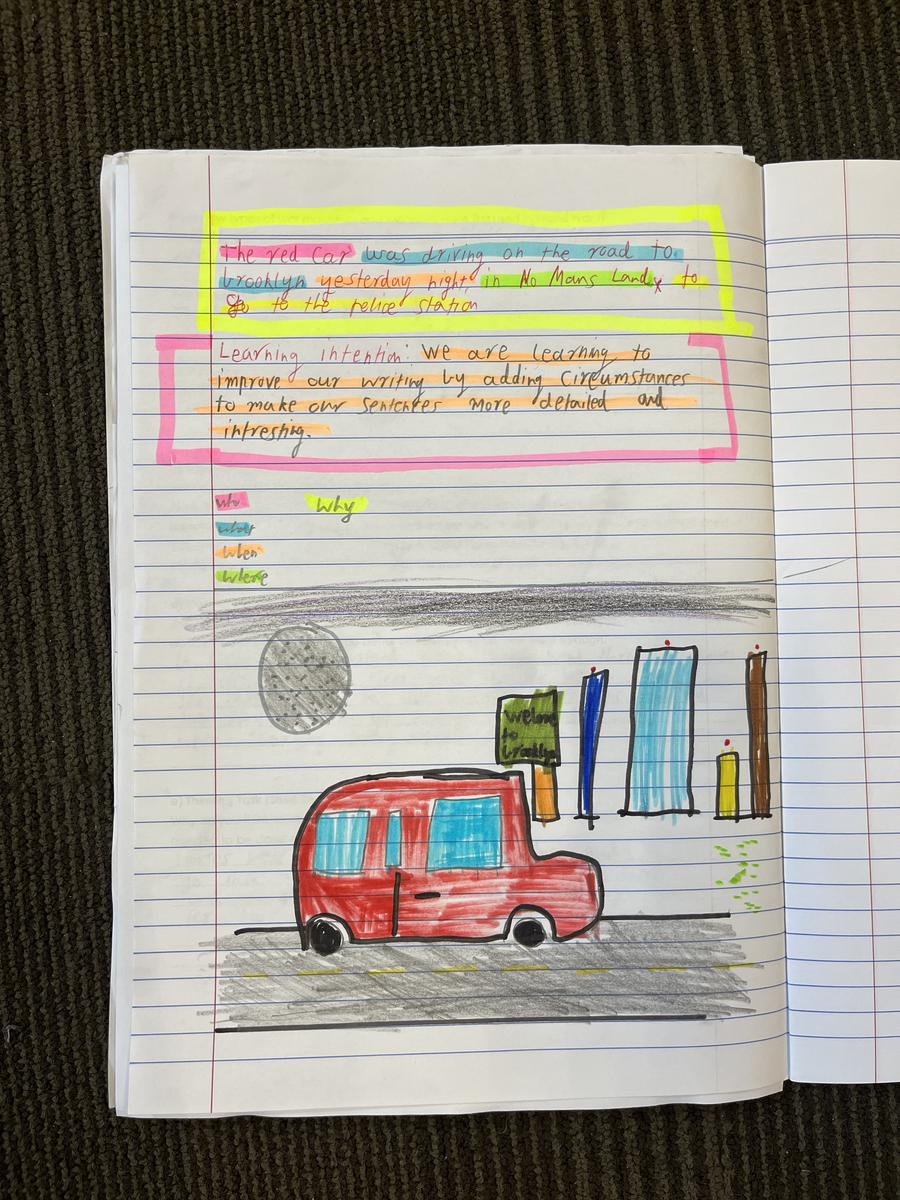 The red Car was driving on the road to
brooklyn yesterday night, in No Mans Land, to
go to the police station
Learning intention: We are learning to
improve our writing by adding Circumstances
to make our sentences more detailed and
intresting.
who why
what
when
where
welcome
to
brooklyn